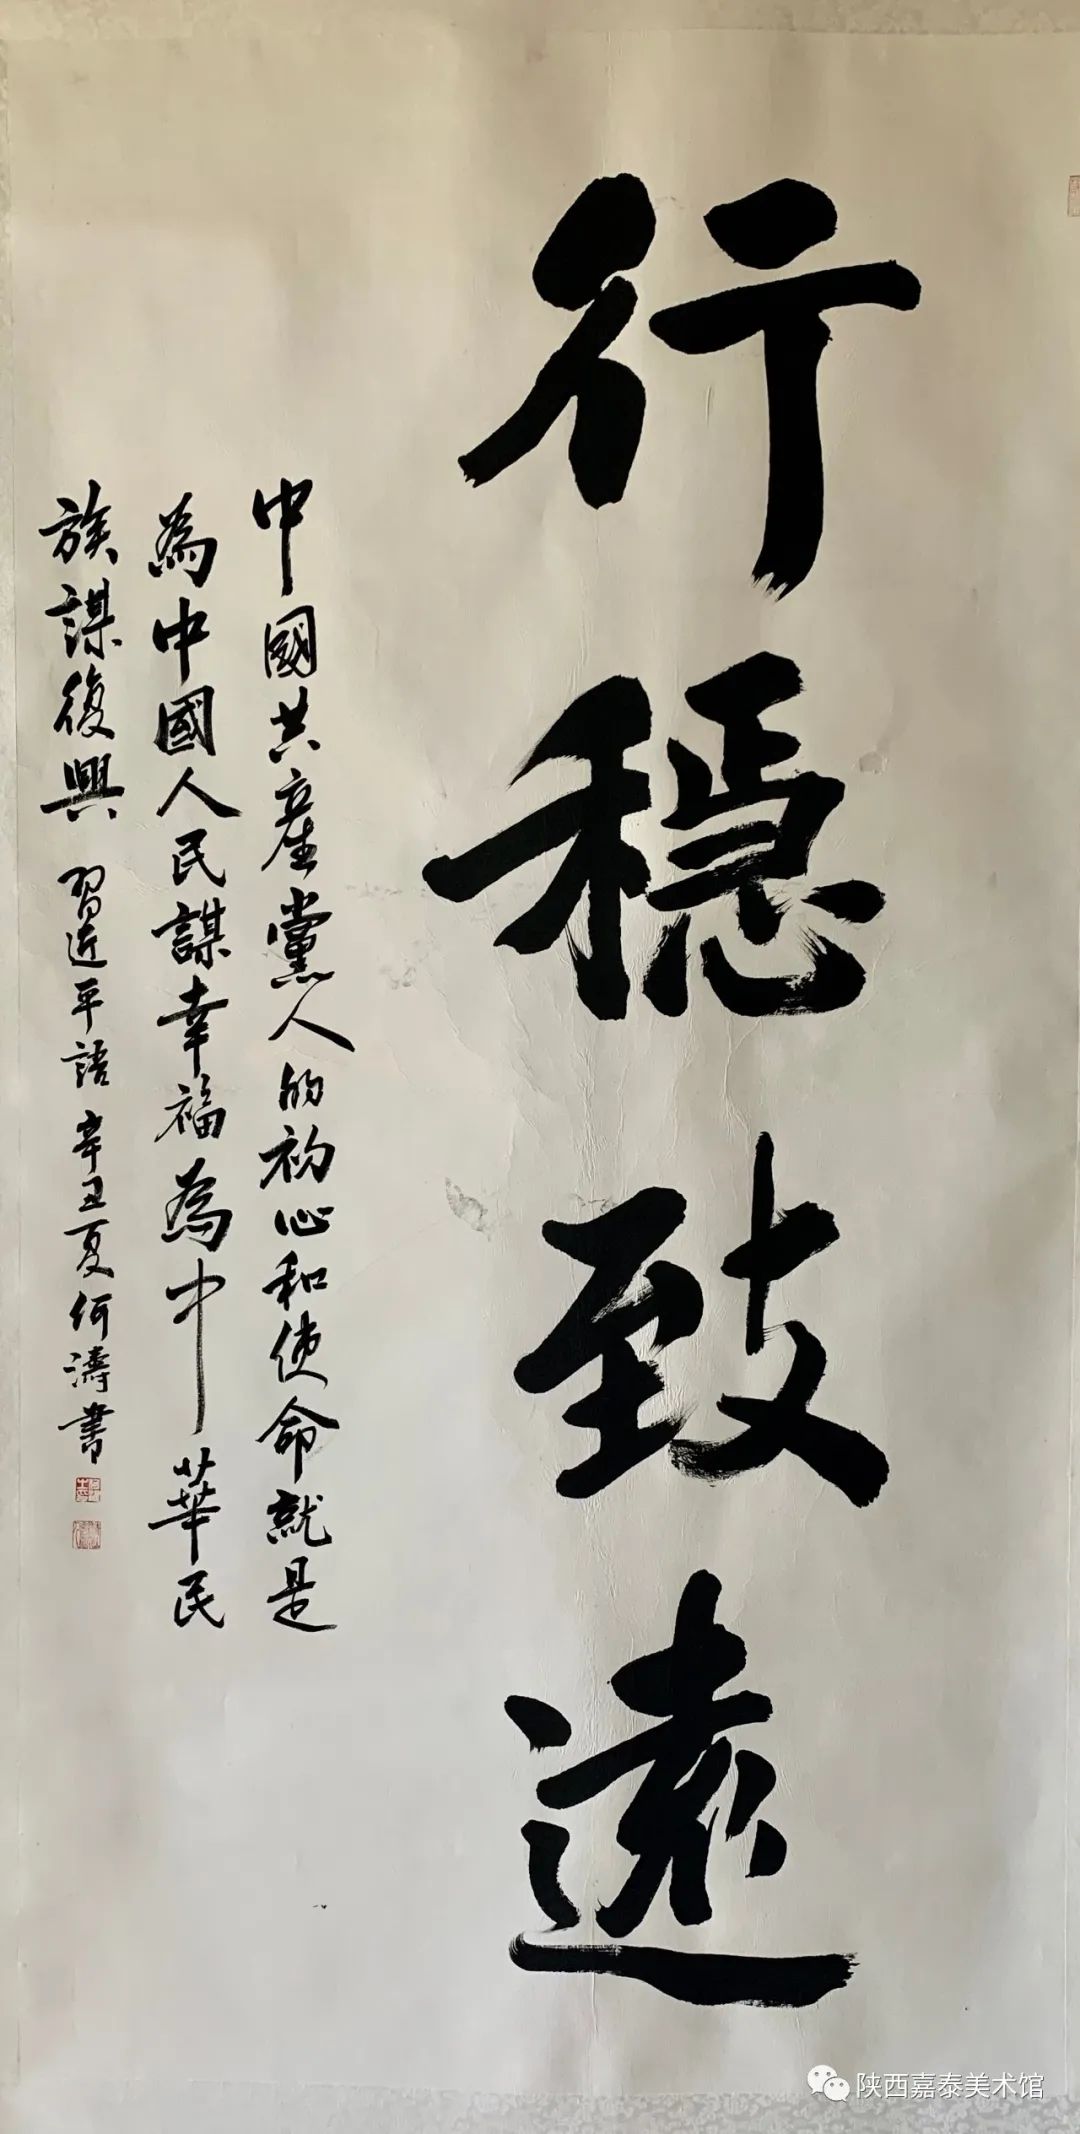 行穩致遠
中國共產黨人的初心和使命就是
為中國人民謀幸福為中華民
族謀復興 習近平語 辛丑夏何濤書
陕西嘉泰美术馆